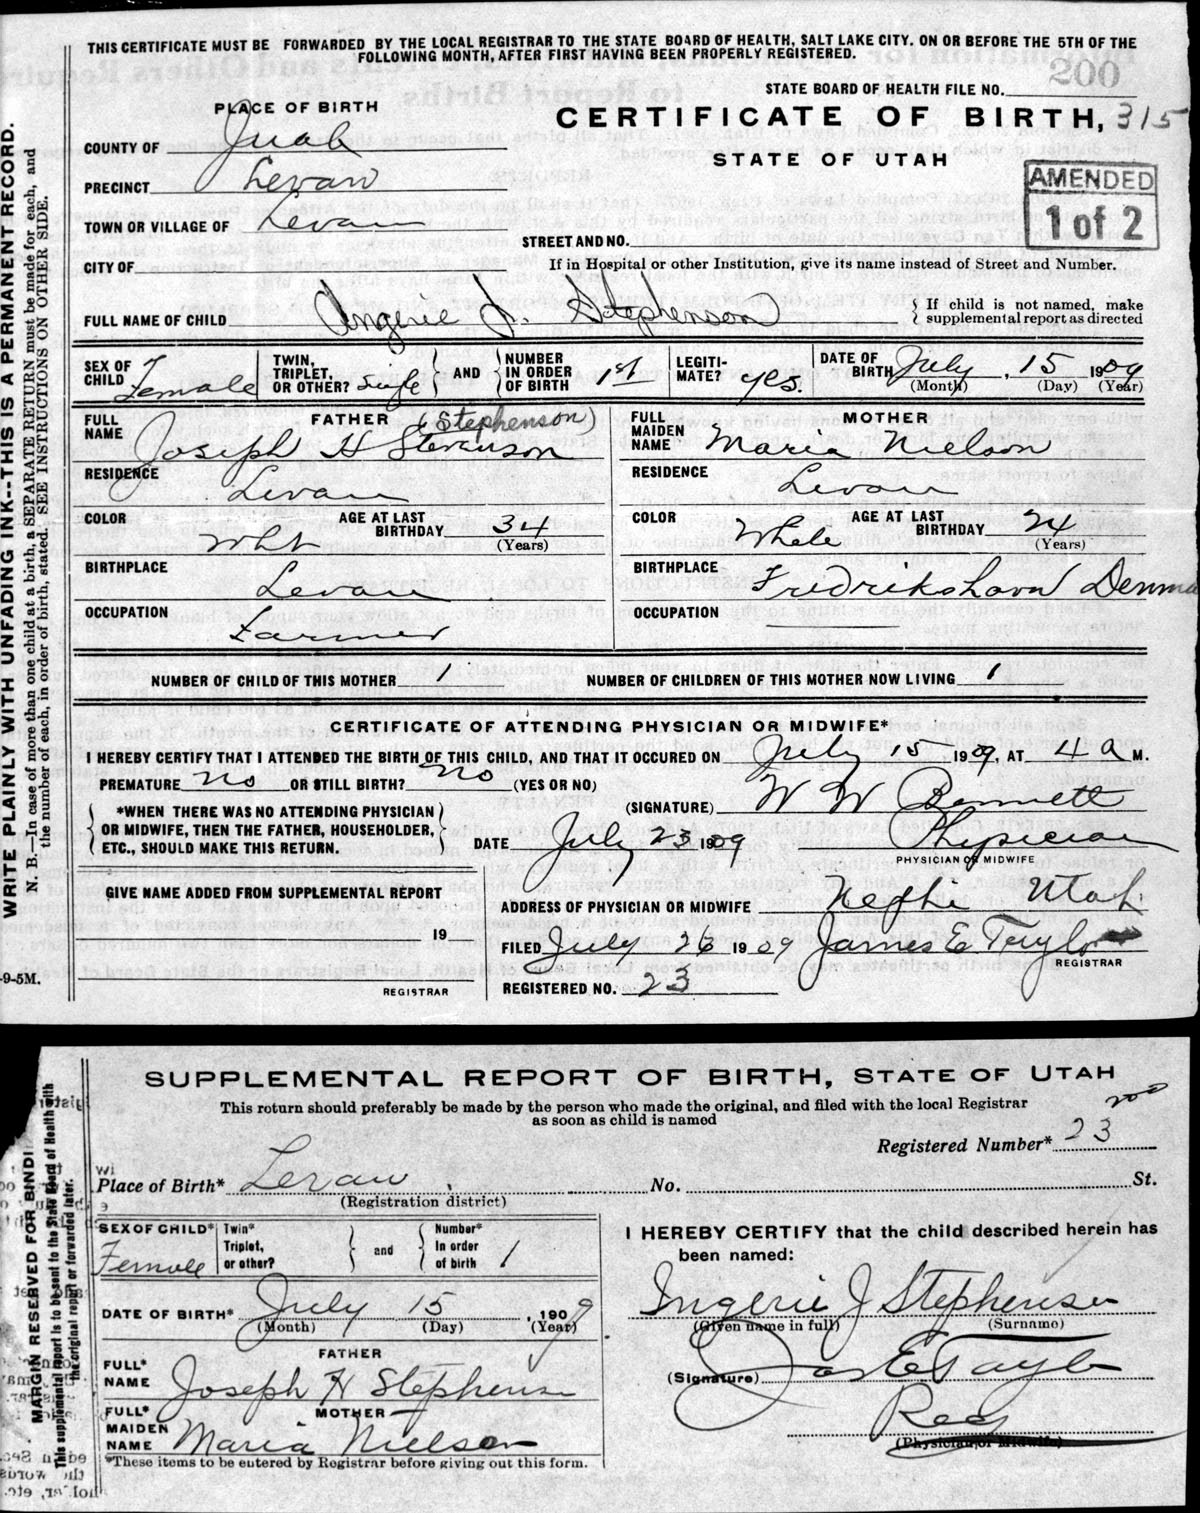 THIS CERTIFICATE MUST BE FORWARDED BY THE LOCAL REGISTRAR TO THE STATE BOARD OF HEALTH, SALT LAKE CITY. ON OR BEFORE THE 5TH OF THE
FOLLOWING MONTH, AFTER FIRST HAVING BEEN PROPERLY REGISTERED.
STATE BOARD OF HEALTH FILE NO. 200
PLACE OF BIRTH
CERTIFICATE OF BIRTH, 315
STATE OF UTAH
AMENDED
1 of 2
COUNTY OF Juab
PRECINCT Levan
TOWN OR VILLAGE OF Levan
STREET AND NO.
CITY OF
If in Hospital or other Institution, give its name instead of Street and Number.
FULL NAME OF CHILD Angerie J. Stephenson
{ If child is not named, make
supplemental report as directed
SEX OF CHILD Female
TWIN, TRIPLET, OR OTHER? Single
AND
NUMBER IN ORDER OF BIRTH 1st
LEGITIMATE? yes.
DATE OF BIRTH July, 15 1909
(Month) (Day) (Year)
FATHER
FULL NAME Joseph H Stevenson (Stephenson)
RESIDENCE Levan
COLOR Wht
AGE AT LAST BIRTHDAY 34 (Years)
BIRTHPLACE Levan
OCCUPATION Farmer
MOTHER
FULL MAIDEN NAME Maria Nielson
RESIDENCE Levan
COLOR White
AGE AT LAST BIRTHDAY 24 (Years)
BIRTHPLACE Fredrikshavn Denma
OCCUPATION
NUMBER OF CHILD OF THIS MOTHER 1
NUMBER OF CHILDREN OF THIS MOTHER NOW LIVING 1
CERTIFICATE OF ATTENDING PHYSICIAN OR MIDWIFE*
I HEREBY CERTIFY THAT I ATTENDED THE BIRTH OF THIS CHILD, AND THAT IT OCCURED ON July 15 1909, AT 4 a M.
PREMATURE no OR STILL BIRTH? no (YES OR NO)
*WHEN THERE WAS NO ATTENDING PHYSICIAN
OR MIDWIFE, THEN THE FATHER, HOUSEHOLDER,
ETC., SHOULD MAKE THIS RETURN.
(SIGNATURE) W W Bennett
DATE July 23 1909
Physician
PHYSICIAN OR MIDWIFE
GIVE NAME ADDED FROM SUPPLEMENTAL REPORT
19
REGISTRAR
ADDRESS OF PHYSICIAN OR MIDWIFE Nephi Utah
FILED July 26 1909 James E Taylor
REGISTRAR
REGISTERED NO. 23
WRITE PLAINLY WITH UNFADING INK--THIS IS A PERMANENT RECORD.
N. B.—In case of more than one child at a birth, a SEPARATE RETURN must be made for each, and
the number of each, in order of birth, stated. SEE INSTRUCTIONS ON OTHER SIDE.
-9-5M.
SUPPLEMENTAL REPORT OF BIRTH, STATE OF UTAH
This return should preferably be made by the person who made the original, and filed with the local Registrar
as soon as child is named
200
Registered Number* 23
Place of Birth* Levan
(Registration district)
No. St.
SEX OF CHILD* Female
Twin* Triplet, or other?
and
Number* In order of birth 1
DATE OF BIRTH* July 15, 1909
(Month) (Day) (Year)
FATHER
FULL* NAME Joseph H Stephenson
MOTHER
FULL* MAIDEN NAME Maria Nielson
*These items to be entered by Registrar before giving out this form.
I HEREBY CERTIFY that the child described herein has
been named:
Ingerie J Stephenson
(Given name in full) (Surname)
(Signature) Jas E Taylor
Reg
(Physician or Midwife)
MARGIN RESERVED FOR BINDI
This supplemental report is to be sent to the State Board of Health with
the original report or forwarded later.